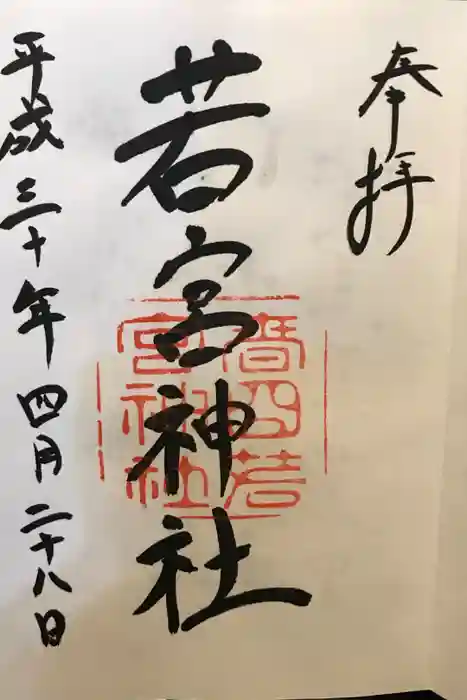 奉拝
若宮神社
平成三十年四月二十八日
四若
宮神社